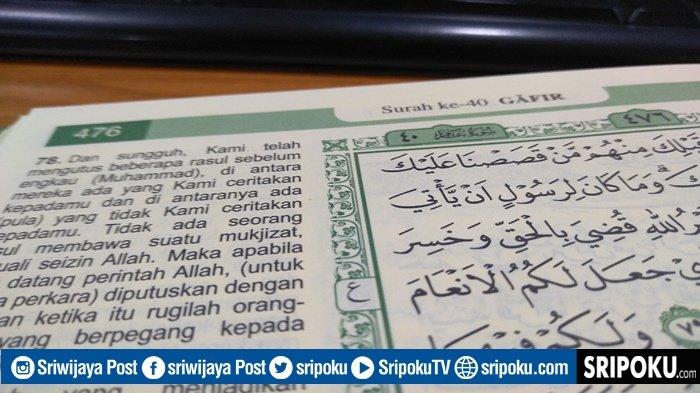 Surah ke-40 GĀFIR
476
78. Dan sungguh, Kami telah
mengutus beberapa rasul sebelum
engkau (Muhammad), di antara
mereka ada yang Kami ceritakan
kepadamu dan di antaranya ada
(pula) yang tidak Kami ceritakan
kepadamu. Tidak ada seorang
sul membawa suatu mukjizat,
uali seizin Allah. Maka apabila
datang perintah Allah, (untuk
a perkara) diputuskan dengan
an ketika itu rugilah orang-
yang berpegang kepada
yang menjadikan
٤٧٦
٤٠
قَبْلِكَ مِنْهُمْ مَّنْ قَصَصْنَا عَلَيْكَ
وَمَا كَانَ لِرَسُوْلٍ اَنْ يَّأْتِيَ
اللّٰهِ قُضِيَ بِالْحَقِّ وَخَسِرَ
جَعَلَ لَكُمُ الْاَنْعَامَ
وَلَكُمْ فِيْهَا
ع
Sriwijaya Post
sriwijaya Post
sripoku
SripokuTV
sripoku.com
SRIPOKU.com